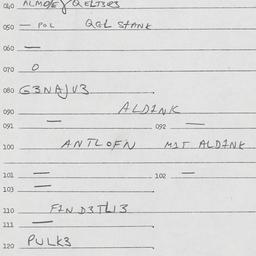 040 ALMO/E
050 — POL QEL STANK
060 —
070 O
080 G3NAJV3
090 ALD1NK
091 — 092 —
100 ANTLOFN M1T ALD1NK
101 — 102 —
103 —
110 F1N D3TL13
111 —
120 PULK3